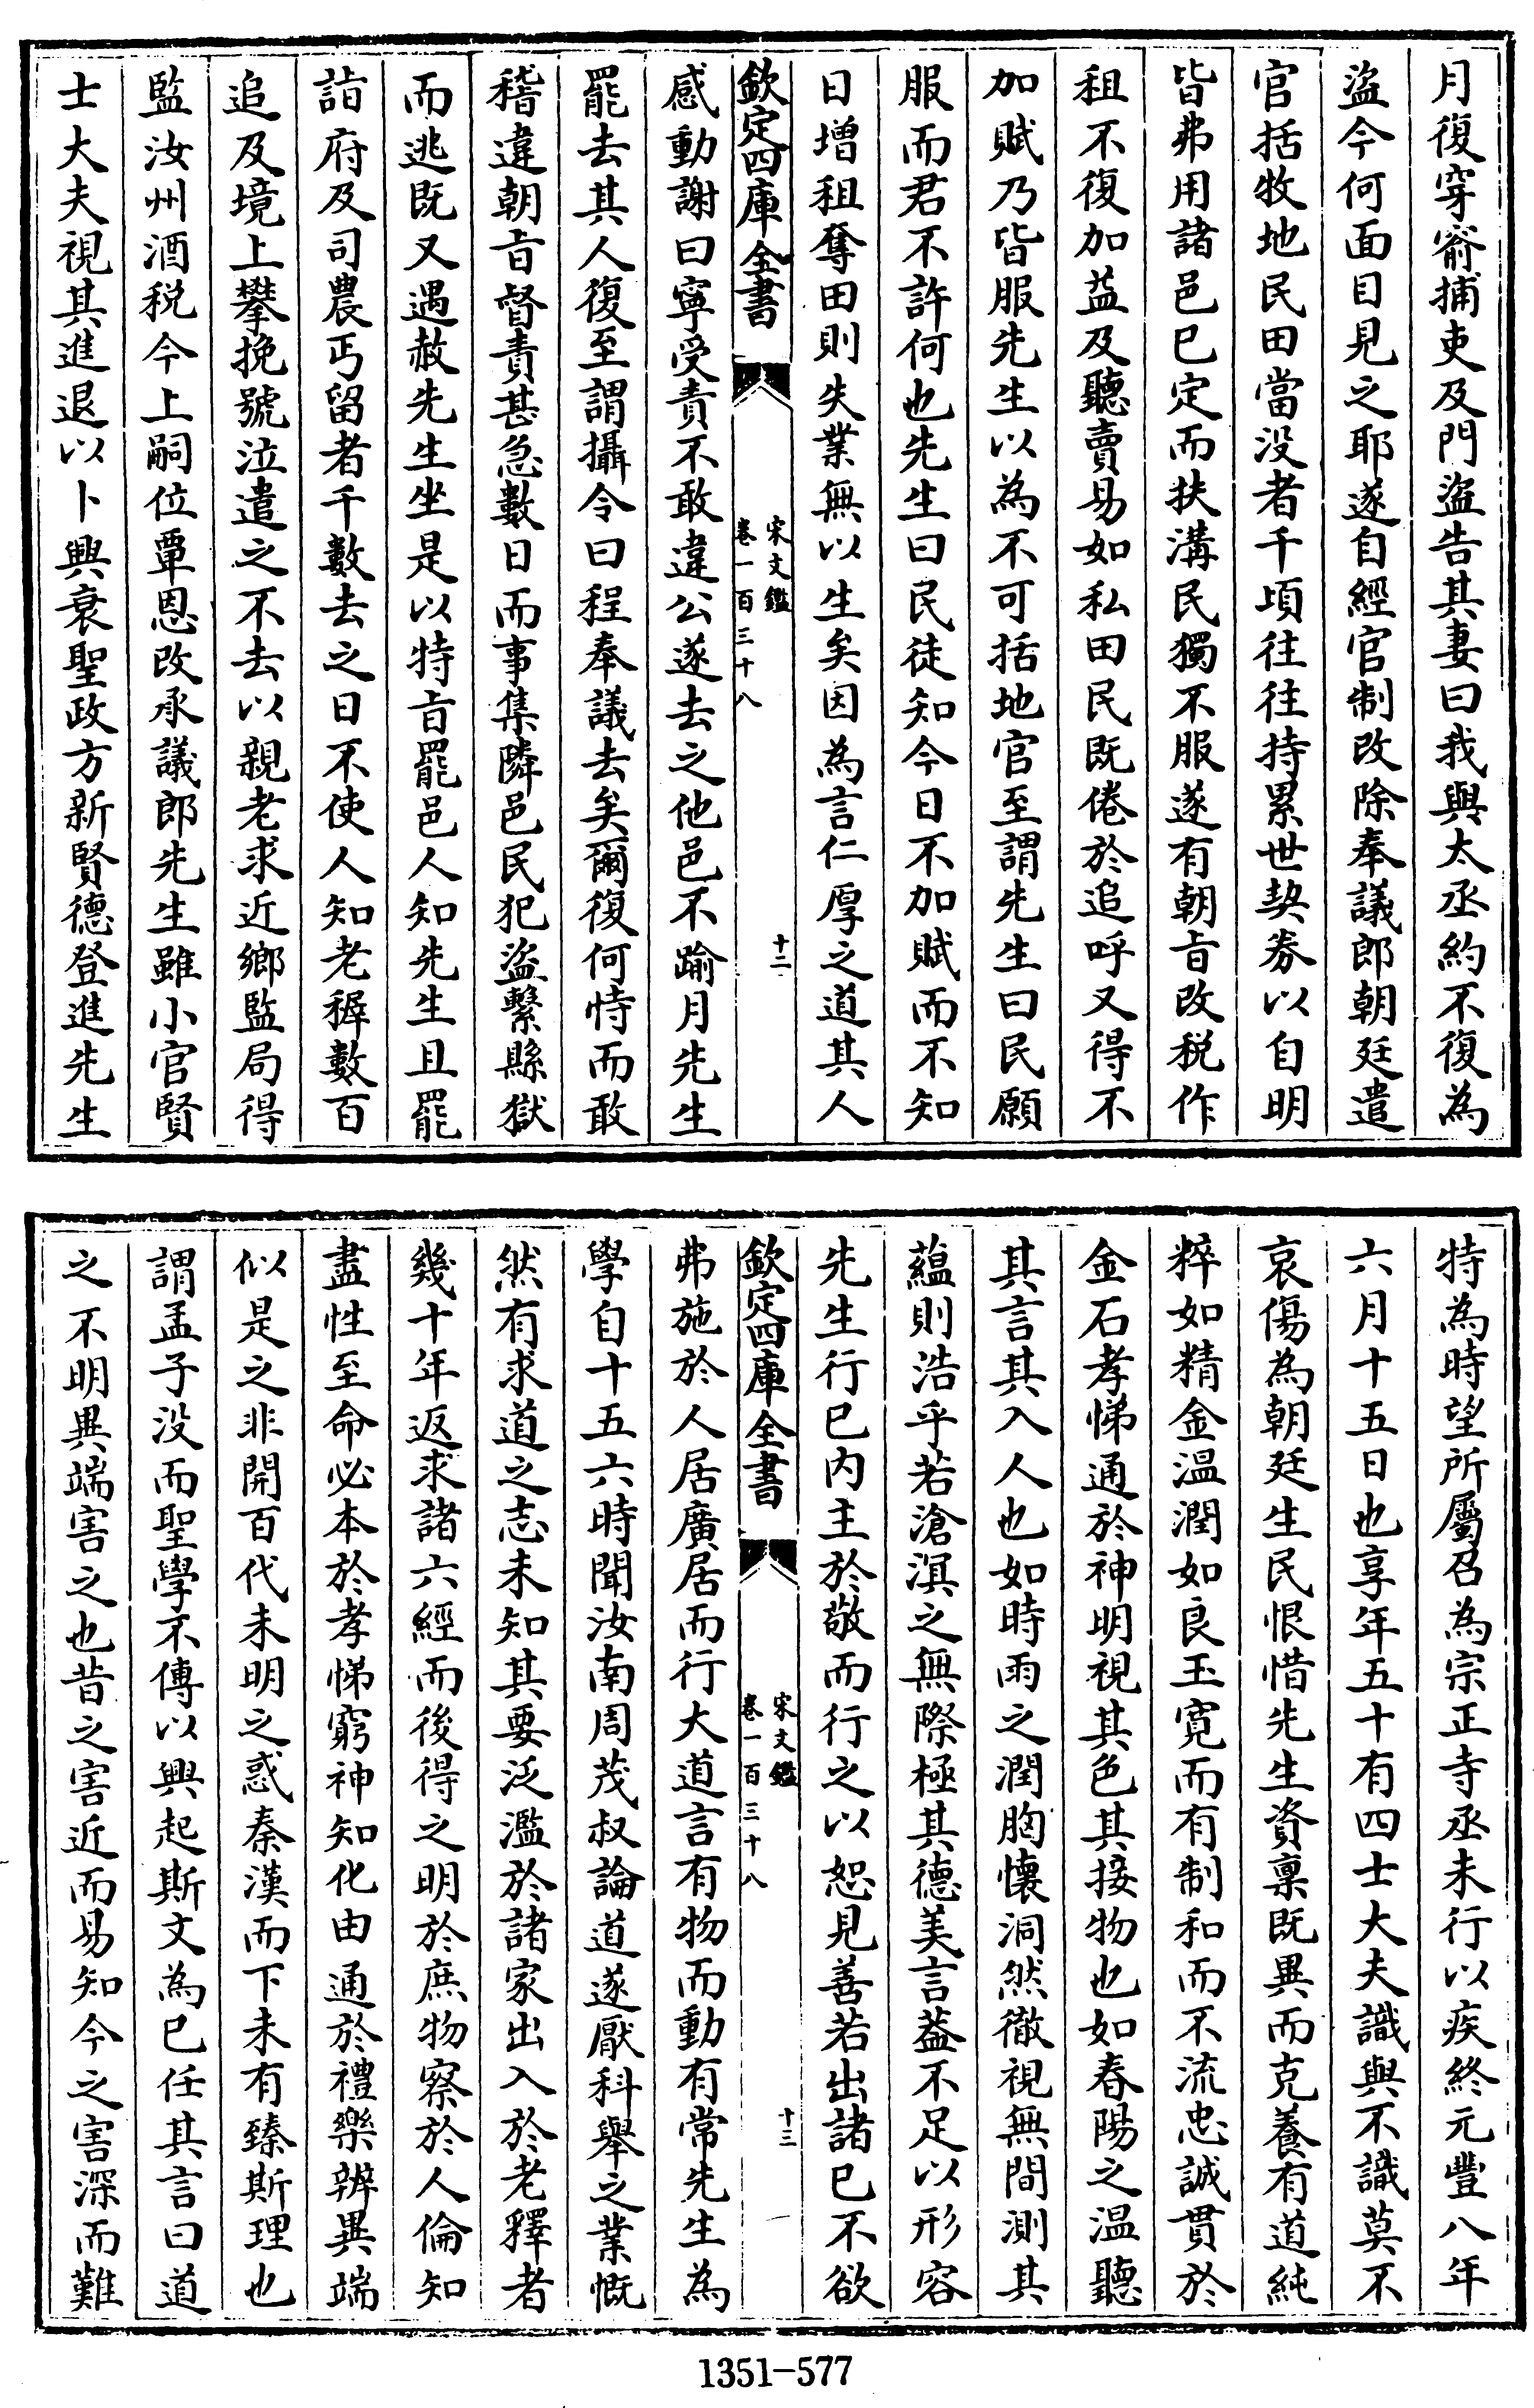 月復穿窬捕吏及門盜告其妻曰我與太丞約不復為
盜今何面目見之耶遂自經官制改除奉議郎朝廷遣
官括牧地民田當没者千頃往往持累世契券以自明
皆弗用諸邑已定而扶溝民獨不服遂有朝㫖改税作
租不復加益及聽賣易如私田民既倦於追呼又得不
加賦乃皆服先生以為不可括地官至謂先生曰民願
服而君不許何也先生曰民徒知今日不加賦而不知
日增租奪田則失業無以生矣因為言仁厚之道其人
欽定四庫全書
宋文鑑
卷一百三十八
十二
感動謝曰寧受責不敢違公遂去之他邑不踰月先生
罷去其人復至謂攝令曰程奉議去矣爾復何恃而敢
稽違朝㫖督責甚急數日而事集隣邑民犯盜繫縣獄
而逃既又遇赦先生坐是以特㫖罷邑人知先生且罷
詣府及司農丐留者千數去之日不使人知老穉數百
追及境上攀挽號泣遣之不去以親老求近鄉監局得
監汝州酒税今上嗣位覃恩改承議郎先生雖小官賢
士大夫視其進退以卜興衰聖政方新賢德登進先生
特為時望所屬召為宗正寺丞未行以疾終元豐八年
六月十五日也享年五十有四士大夫識與不識莫不
哀傷為朝廷生民恨惜先生資禀既異而克養有道純
粹如精金温潤如良玉寛而有制和而不流忠誠貫於
金石孝悌通於神明視其色其接物也如春陽之温聽
其言其入人也如時雨之潤胸懐洞然徹視無間測其
蘊則浩乎若滄溟之無際極其德美言葢不足以形容
先生行已内主於敬而行之以恕見善若出諸已不欲
欽定四庫全書
宋文鑑
卷一百三十八
十三
弗施於人居廣居而行大道言有物而動有常先生為
學自十五六時聞汝南周茂叔論道遂厭科舉之業慨
然有求道之志未知其要泛濫於諸家出入於老釋者
幾十年返求諸六經而後得之明於庶物察於人倫知
盡性至命必本於孝悌窮神知化由通於禮樂辨異端
似是之非開百代未明之惑秦漢而下未有臻斯理也
謂孟子没而聖學不傳以興起斯文為已任其言曰道
之不明異端害之也昔之害近而易知今之害深而難
1351-577